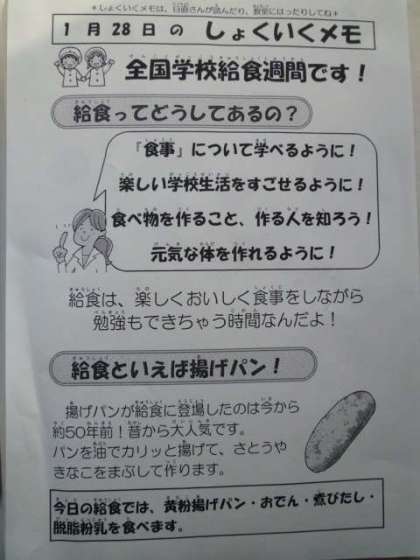 ＊しょくいくメモは、日直さんが読んだり、教室にはったりしてね＊
1月28日の しょくいくメモ
全国学校給食週間です！
給食ってどうしてあるの？
「食事」について学べるように！
楽しい学校生活をすごせるように！
食べ物を作ること、作る人を知ろう！
元気な体を作れるように！
給食は、楽しくおいしく食事をしながら
勉強もできちゃう時間なんだよ！
給食といえば揚げパン！
揚げパンが給食に登場したのは今から
約50年前！昔から大人気です。
パンを油でカリッと揚げて、さとうや
きなこをまぶして作ります。
今日の給食では、黄粉揚げパン・おでん・煮びたし・
脱脂粉乳を食べます。